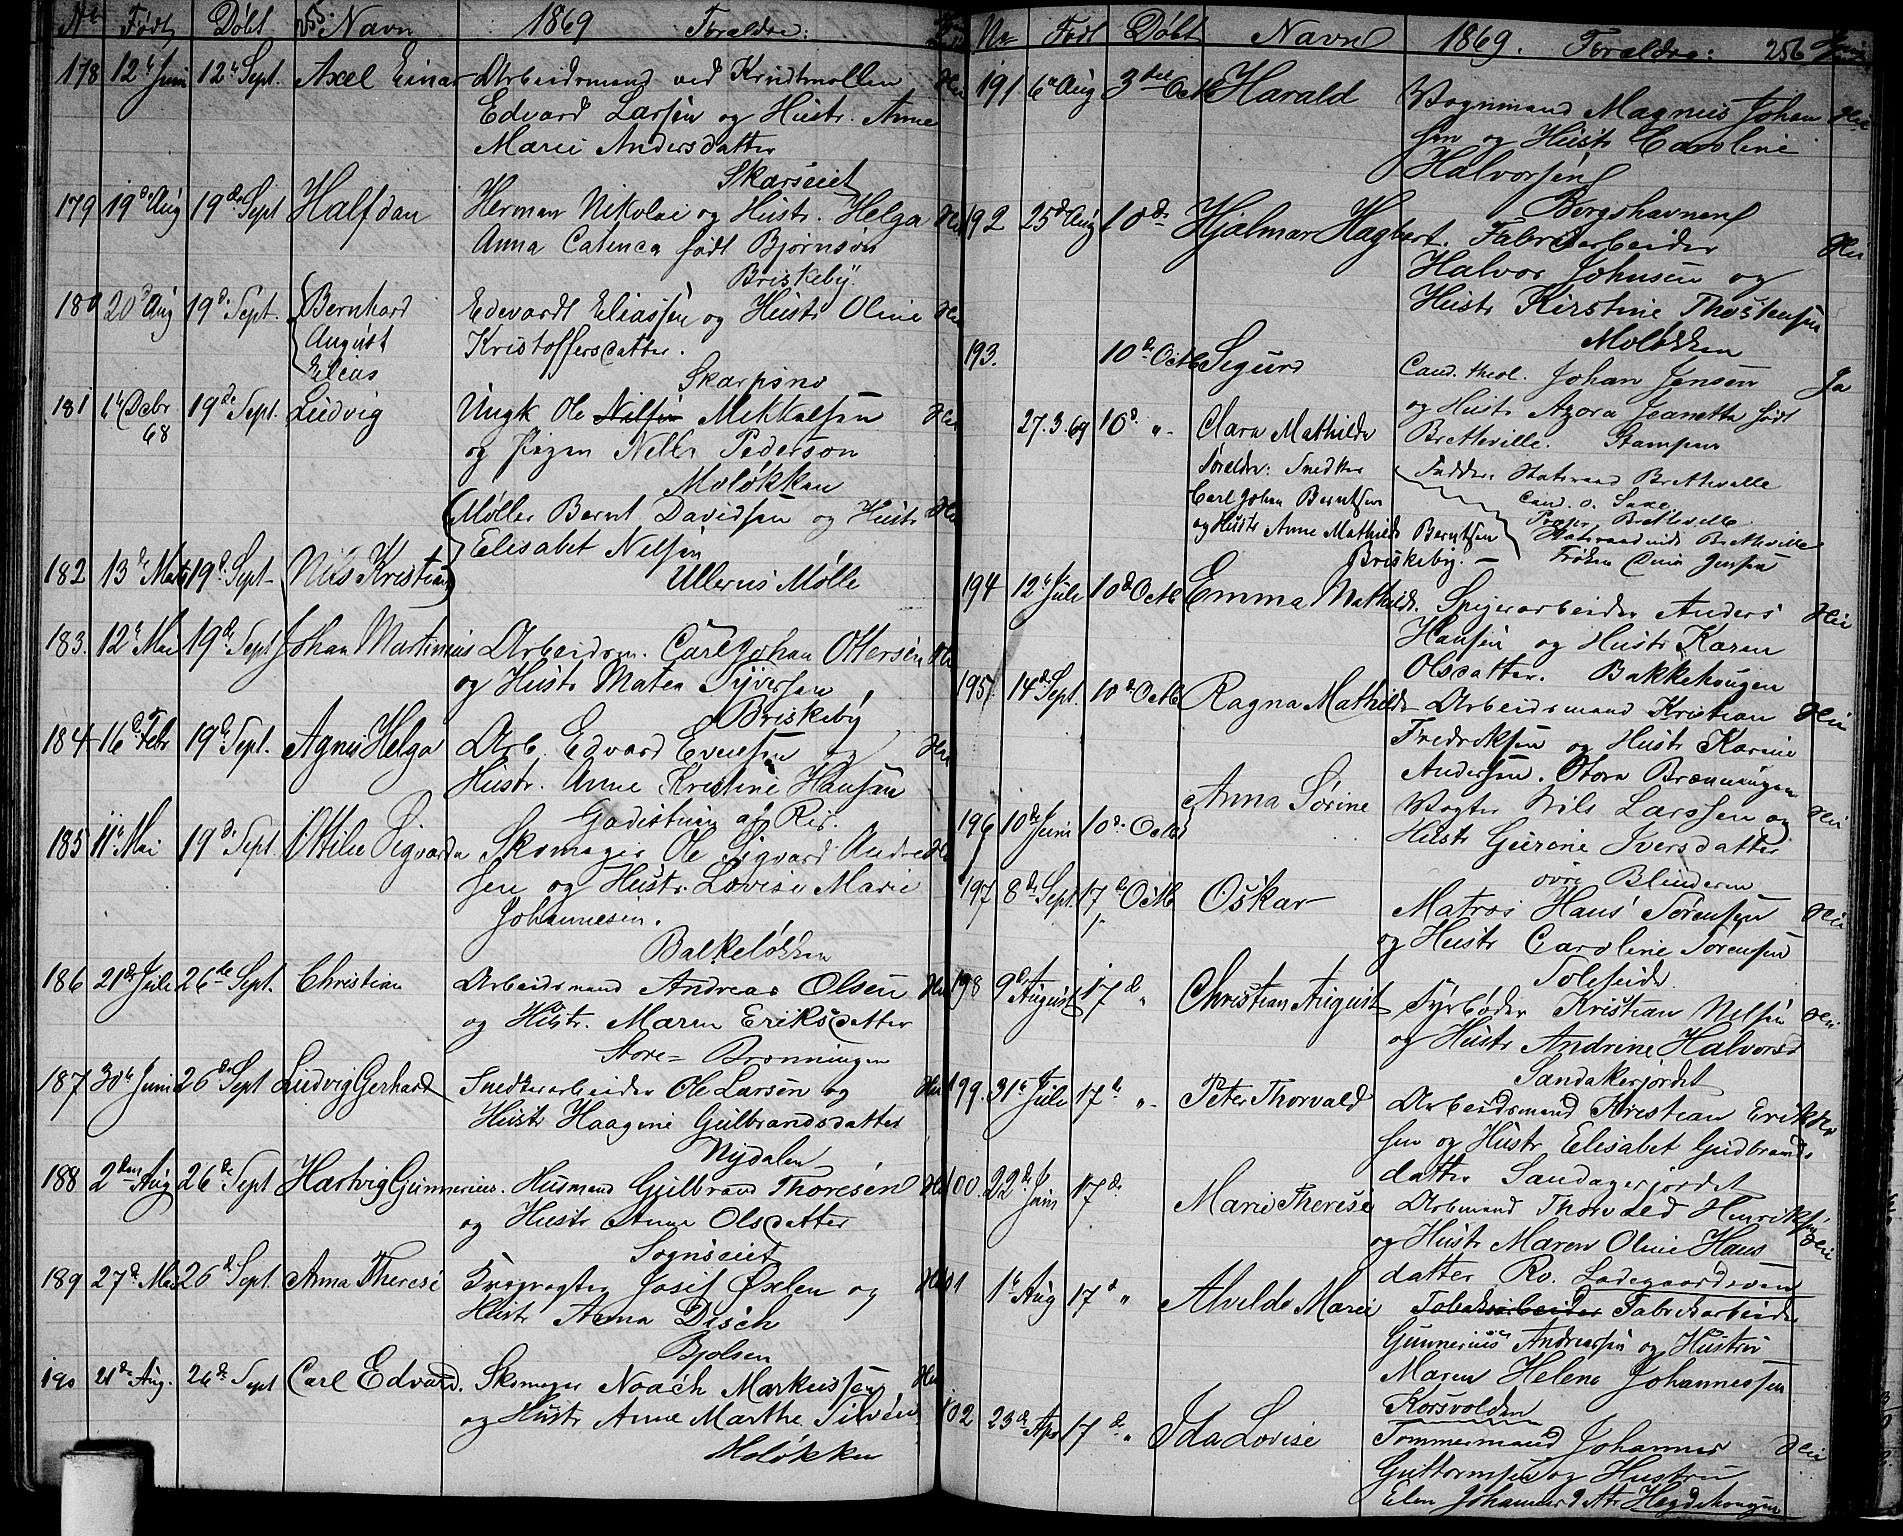 No Født Døbt 255. Navn 1869 Forældre:
178 12te Juni 12te Sept. Axel Einar Arbeidsmand ved Krudtmøllen
Edvard Larsen og Hustr. Anne
Marie Andersdatter
Skarseiet
179 19de Aug 19de Sept Halfdan Herman Nikolai og Hustr. Helga
Anna Catinca født Bjørnson
Briskeby
180 20de Aug 19de Sept. Bernhard Edevardt Eliassen og Hustr Oline
August Kristoffersdatter.
Elias
Skarpsno
181 6te Decbr 19de Sept. Ludvig Ungk Ole Nilsen Mikkalsen
68 og Pigen Nelle Pederson
Moløkken
Møller Bernt Davidsen og Hustr
Elisabet Nelsen
182 13de Marts 19de Sept Nils Kristian Ullerns Mølle
183. 12te Mai 19de Sept Johan Martinius Arbeidsm. Carl Johan Ottersen
og Hustr Matea Syversen
Briskeby
184 16de Febr 19de Sept. Agnes Helga Arb. Edvard Evensen og
Hustr. Anne Kristine Hansen
Godistuen af Ris.
185 11te Mai 19de Sept Ottilie Sigvarda Skomager Ole Sigvard Andre
sen og Hustr. Lovise Marie
Johannesen.
Balkeløkken
186 21de Juli 26de Sept. Christian Arbeidsmand Andreas Olsen
og Hustr. Maren Eriksdatter
Store= Brønningen
187 30te Juni 26de Sept Ludvig Gerhard Snedkerarbeider Ole Larsen og
Hustr Haagine Gulbrandsdatter
Nydalen
188 2den Aug 26de Sept Hartvig Gunnerius. Husmand Gulbrand Thoresen
og Hustr Anne Olsdatter
Sognseiet
189 27de Mai 26de Sept. Anna Therese Josef Øxlen og
Hustr Anna Disch
Bjølsen
190 21de Aug. 26de Sept Carl Edvard. Skomager Noach Markussen
og Hustr Anne Marthe Silvén
Moløkken
No Født Døbt Navn 1869. Forældre: 256
191 6te Aug 3die Octb Harald Vognmand Magnus Johan
sen og Hustr Caroline
Halvorsen
Bergshavnen
192 25de Aug 10de Hjalmar Hagbart. Fabrikarbeider
Halvor Johnsen og
Hustr Kirstine Thostensen
Moløkken
193. 10de Octb Sigurd Cand. theol. Johan Jensen Ja
og Hustr Azora Jeanetta født
Bretteville. Stampen
27.3.69 10de " Clara Mathilde
Forældre: Snedker
Carl Johan Berntsen
og Hustr Anne Mathilde Berntsen
Briskeby. —
Faddere Statsraad Bretteville
Cand. O. Saxe
Bretteville
Statsraadinde Bretteville
Frøken Jensen
194 12te Juli 10de Octb Emma Mathilde. Spigerarbeider Anders
Hansen og Hustr Karen
Olsdatter. Bakkehaugen
195 14de Sept. 10de Octb Ragna Mathilde Arbeidsmand Kristian
Fredriksen og Hustr Karine
Andersen. Store Brænningen
196 10de Juni 10de Octb Anna Sørine Vogter Nils Larssen og
Hustr Gurine Iversdatter
øvre Blindern
197 8de Sept. 17de Octb Oskar Matros Hans Sørensen
og Hustr Caroline Sørensen
198 9de August 17de " Christian August Fyrbøder Kristian Nelsen
og Hustr Andrine Halvorsd
Sandakerjordet
199. 31te Juli 17de " Peter Thorvald Arbeidsmand Kristian Erik
sen og Hustr Elisabet Gudbrands
datter Sandagerjordet
100. 22de Juni 17de Marie Therese Arbmand Thorvled Henriksen
og Hustr Maren Oline Hans
datter Rv. Ladegaardsveien
101 1te Aug 17de " Alvilde Marie Tobaksarbeider Fabrikarbeider
Gunnerius Andreassen og Hustru
Maren Helene Johannessen
Korsvolden
102 23de Apr 17de " Ida Lovise Tømmermand Johannes
Guttormsen og Hustru
Elen Johannesd atr Hægdehougen